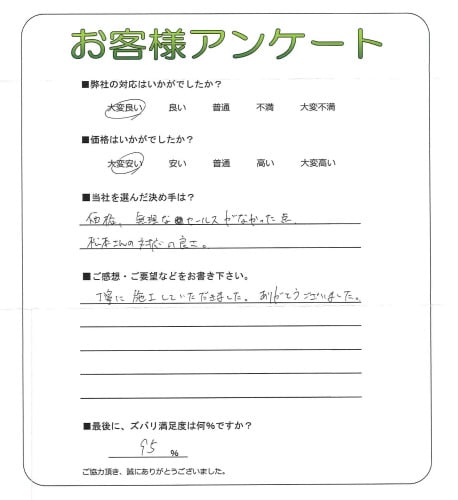 お客様アンケート
■弊社の対応はいかがでしたか?
大変良い 良い 普通 不満 大変不満
■価格はいかがでしたか?
大変安い 安い 普通 高い 大変高い
■当社を選んだ決め手は?
価格、無理なセールスがなかった点、
松本さんの対応の良さ。
■ご感想・ご要望などをお書き下さい。
丁寧に施工していただきました。ありがとうございました。
■最後に、ズバリ満足度は何%ですか?
95 %
ご協力頂き、誠にありがとうございました。